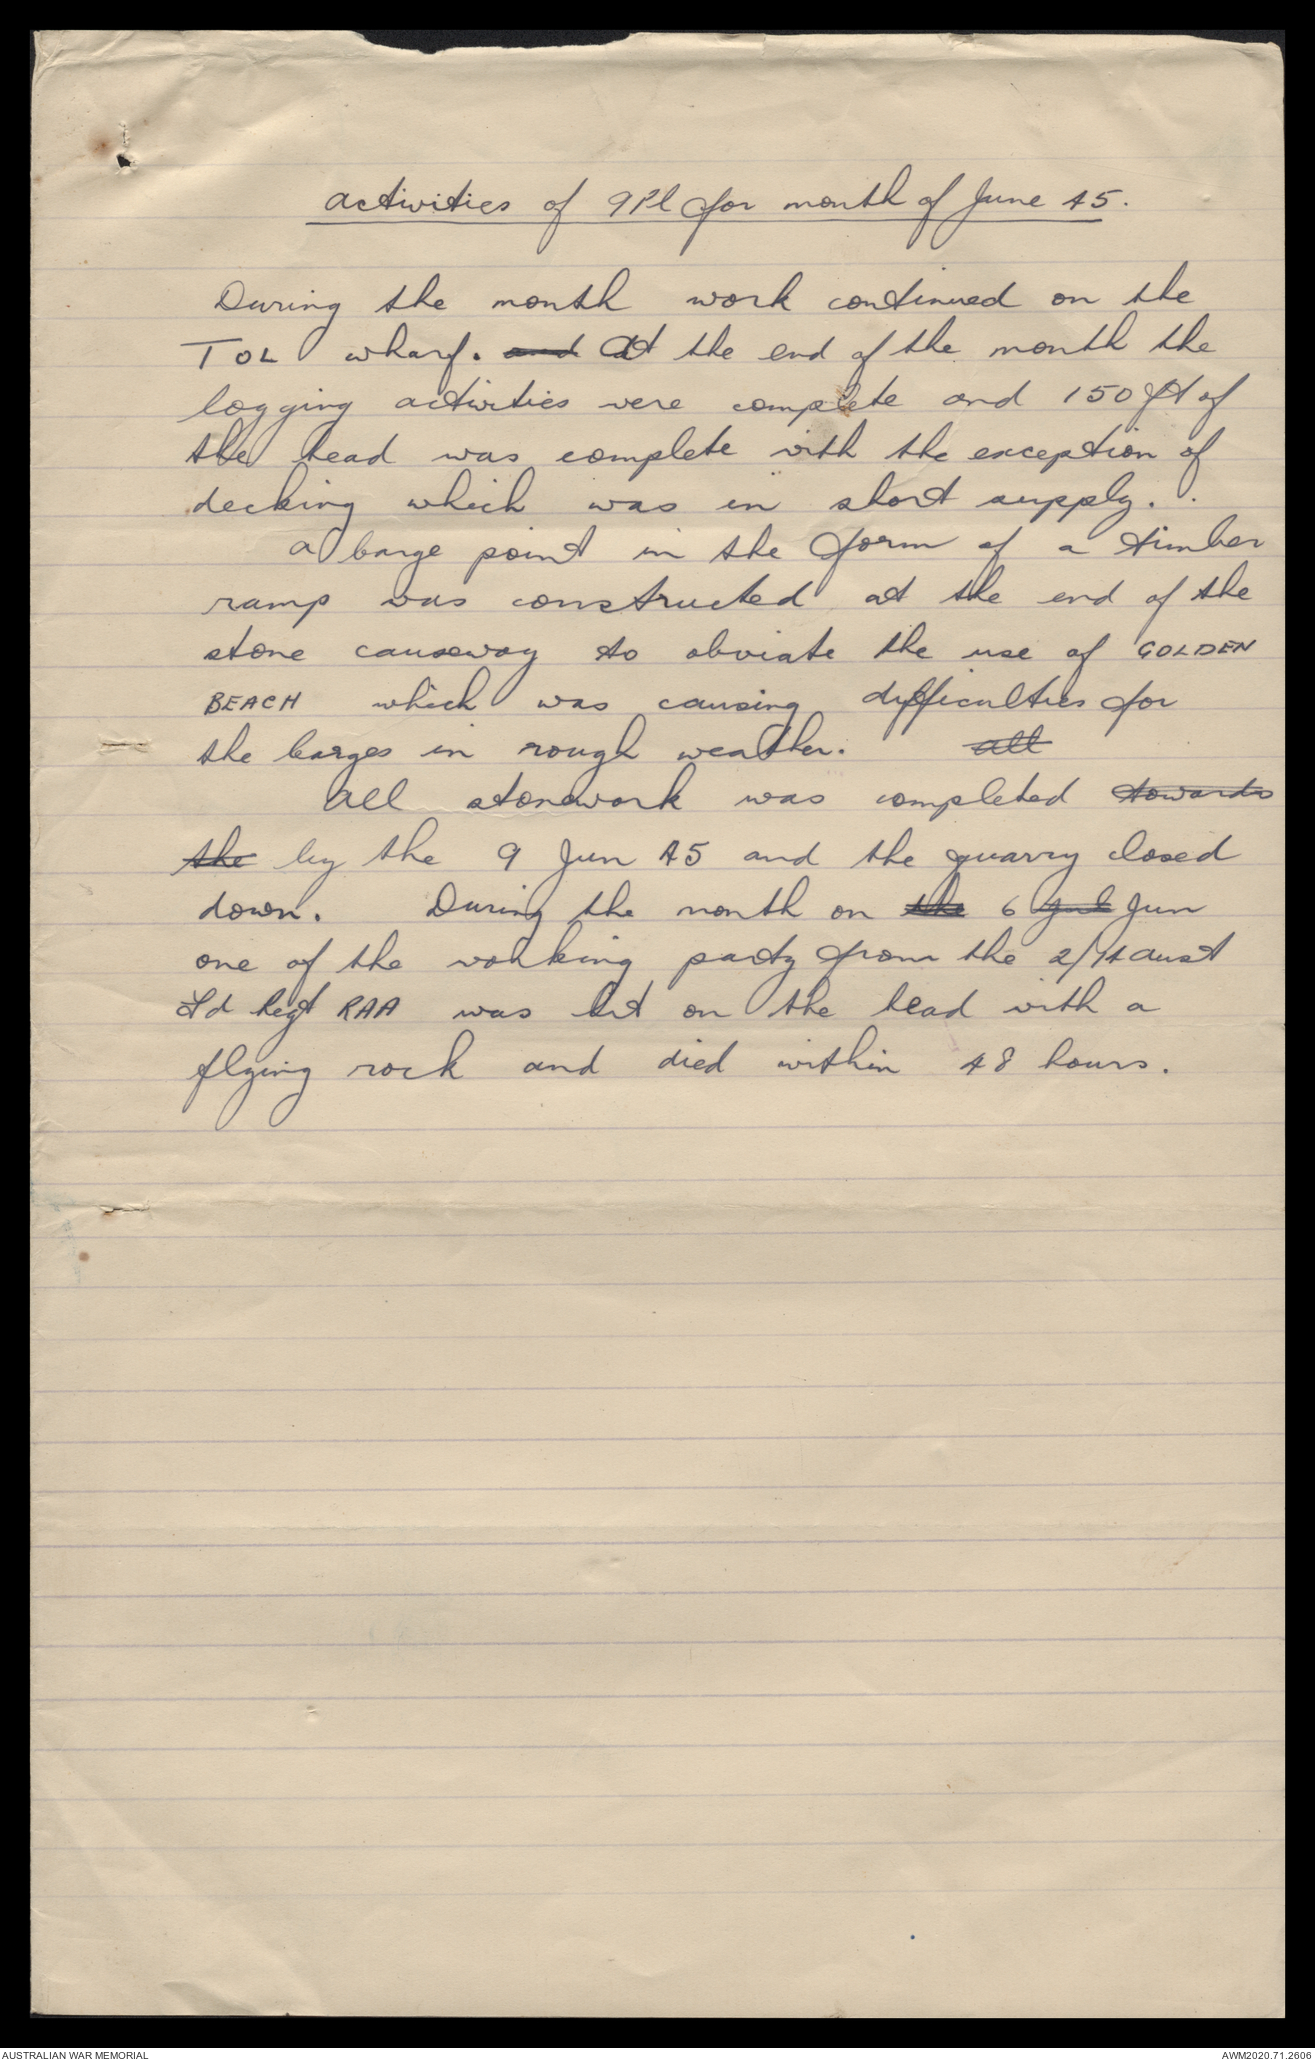 Activities of 9 Pl for month of June 45.
During the month work continued on the
TOL wharf. and At the end of the month the
logging activities were complete and 150 ft of
the head was complete with the exception of
decking which was in short supply.
A barge point in the form of a timber
ramp was constructed at the end of the
stone causeway to obviate the use of GOLDEN
BEACH which was causing difficulties for
the barges in rough weather. All
All stonework was completed towards
the by the 9 Jun 45 and the quarry closed
down. During the month on the 6 Jun
one of the working party from the Aust
Fd Regt RAA was hit on the head with a
flying rock and died within 48 hours.
AUSTRALIAN WAR MEMORIAL
AWM2020.71.2606